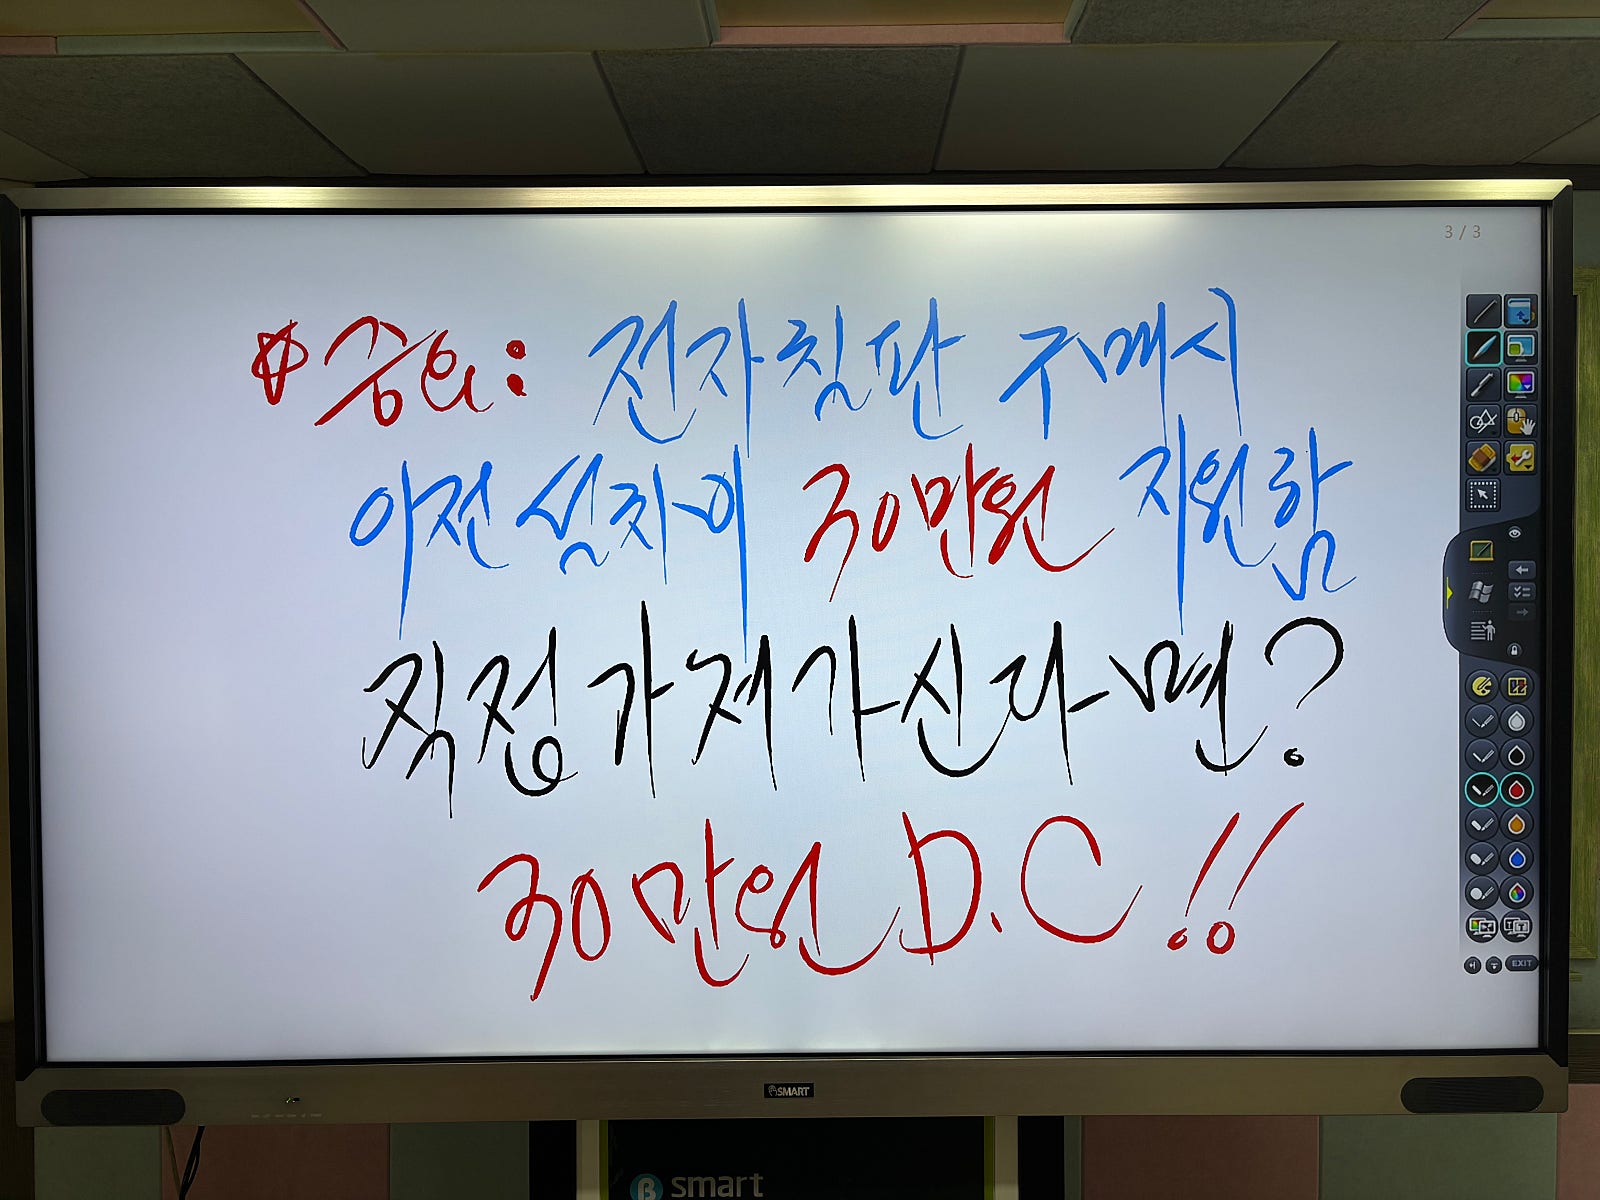 3 / 3
☆중요: 전자칠판 구매시
이전설치비 30만원 지원함
직접 가져가신다면?
30만원 D.C!!
EXIT
SMART
smart